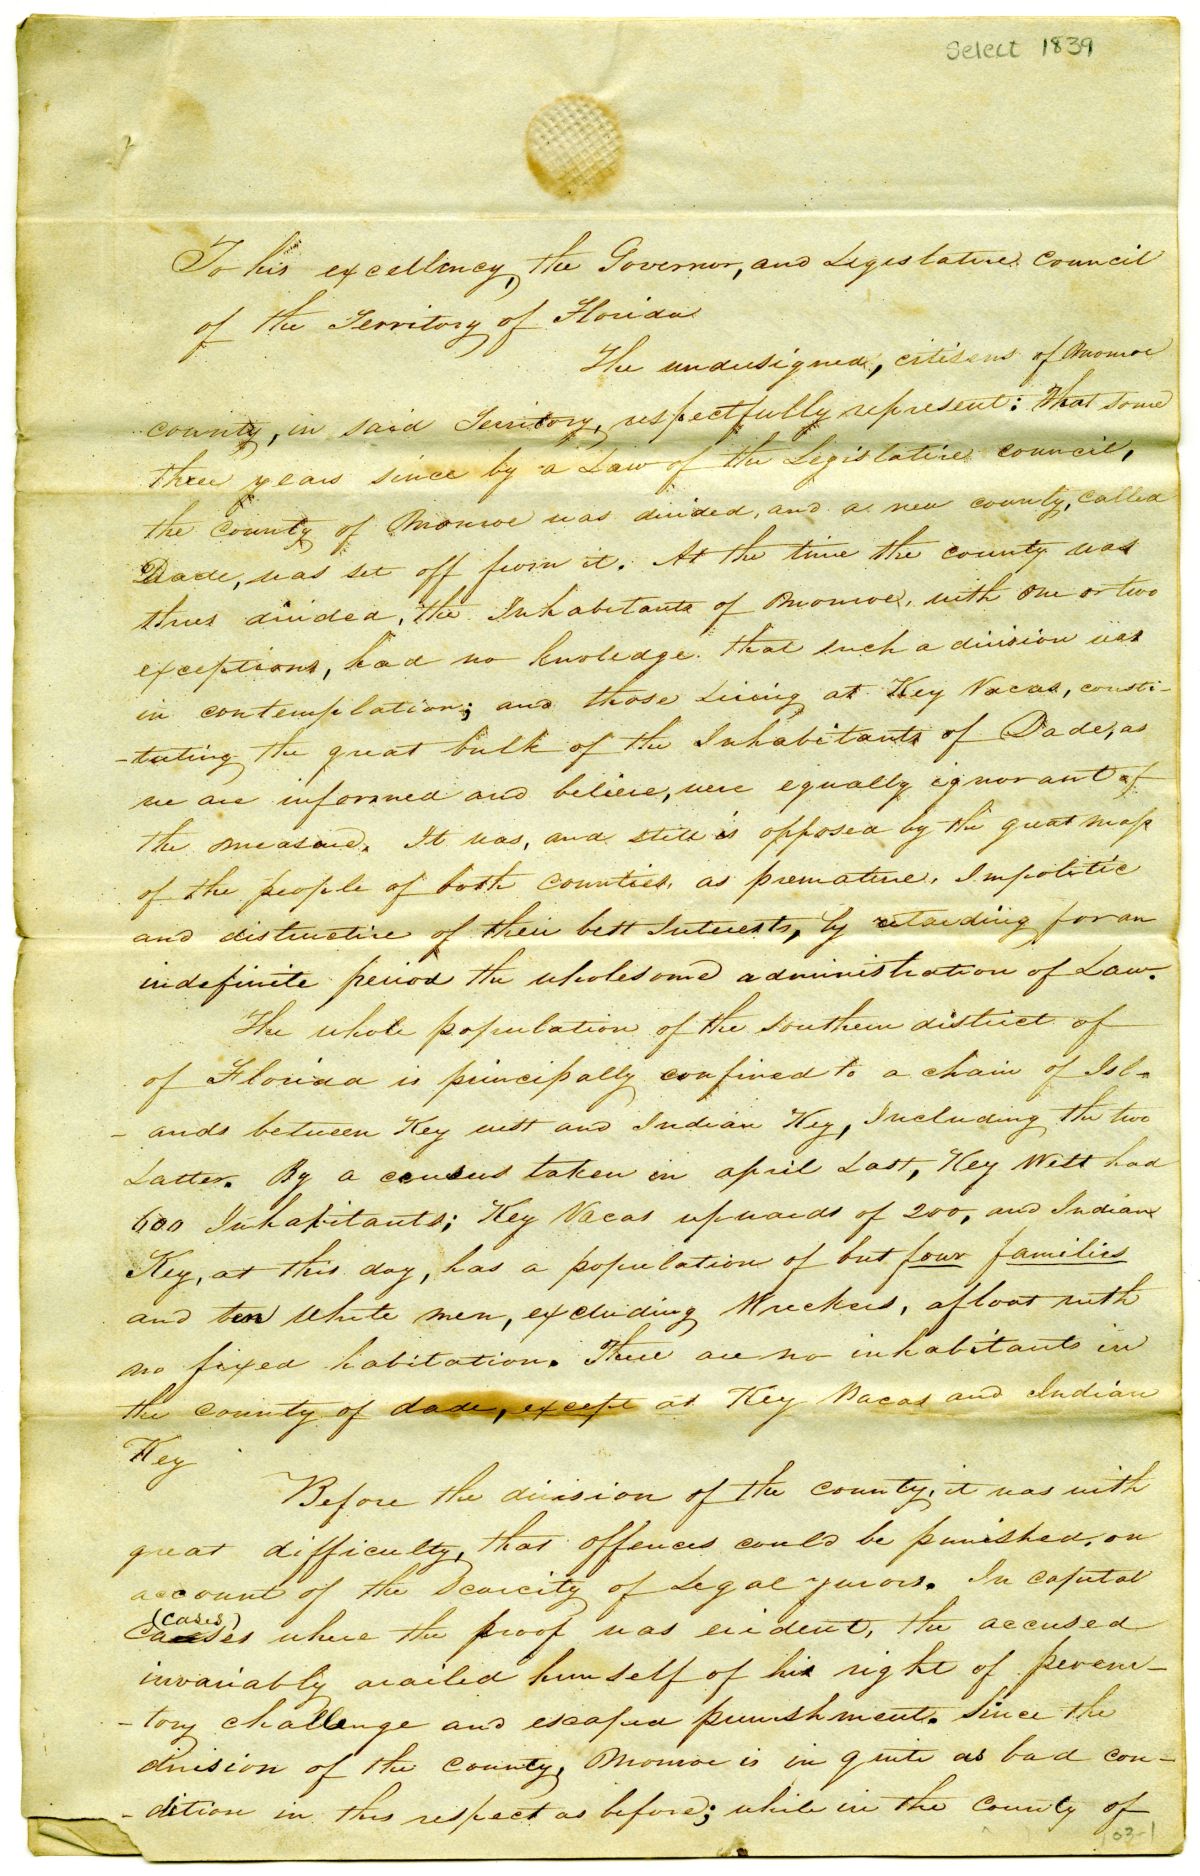 Select 1839
To his excellency, the Governor, and Legislative Council
of the Territory of Florida
The undersigned, citisens of Monroe
county, in said Territory, respectfully represent: That some
three years since by a Law of the Legislative council,
the county of Monroe was divided, and a new county, called
Dade, was set off from it. At the time the county was
thus divided, the Inhabitants of Monroe, with one or two
exceptions, had no knoledge that such a division was
in contemplation; and those Living at Key Vacas, consti-
-tuting the great bulk of the Inhabitants of Dade, as
we are informed and believe, were equally ignorant of
the measure. It was, and still is opposed by the great mass
of the people of both counties, as premature, Impolitic
and distructive of their best Interests, by retarding for an
indefinite period the wholesome administration of Law.
The whole population of the southern district of
of Florida is principally confined to a chain of Isl-
-ands between Key west and Indian Key, Including the two
Latter. By a census taken in april Last, Key West had
600 Inhabitants; Key Vacas upwards of 200, and Indian
Key, at this day, has a population of but four families
and ten white men, excluding Wreckers, afloat with
no fixed habitation. There are no inhabitants in
the county of dade, except at Key Vacas and Indian
Key
Before the division of the county, it was with
great difficulty, that offences could be punished, on
account of the Scarcity of Legal jurors. In capital
(cases)
causes where the proof was evident, the accused
invariably availed himself of his right of perem-
-tory challenge and escaped punishment. Since the
division of the county, Monroe is in quite as bad con-
-dition in this respect as before; while in the county of
03-1